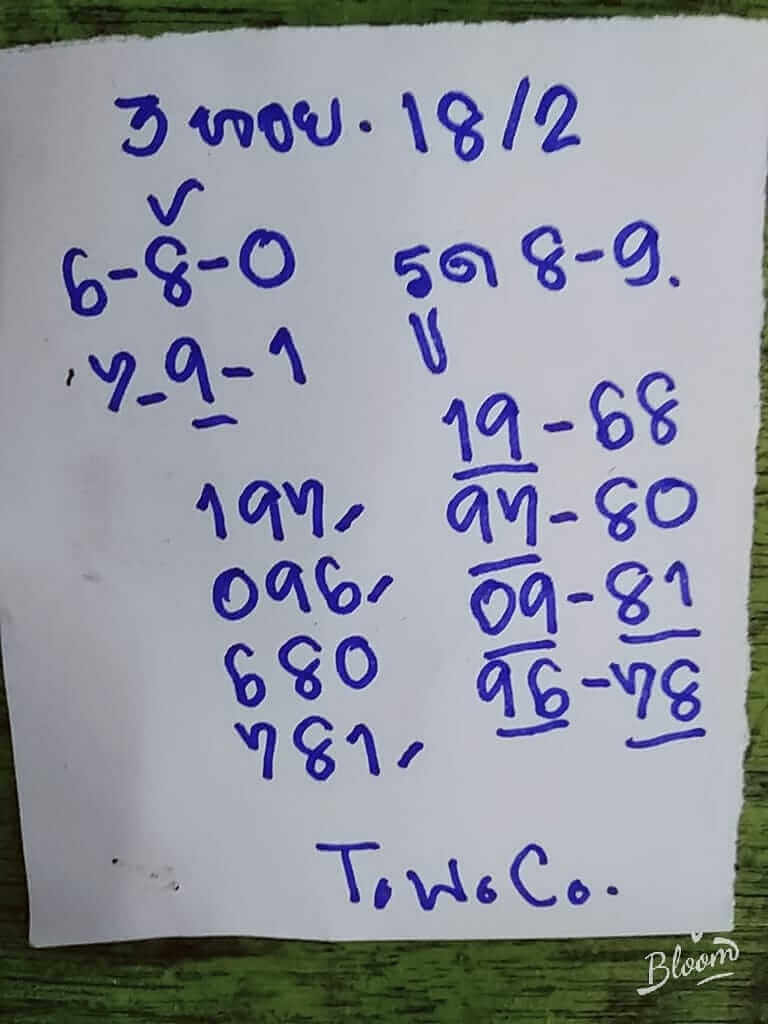 3 หอย. 18/2
6-8-0
รูด 8-9.
7-9-1
19-68
197,
97-80
096,
09-81
680
96-78
781,
T.W.Co.
Bloom